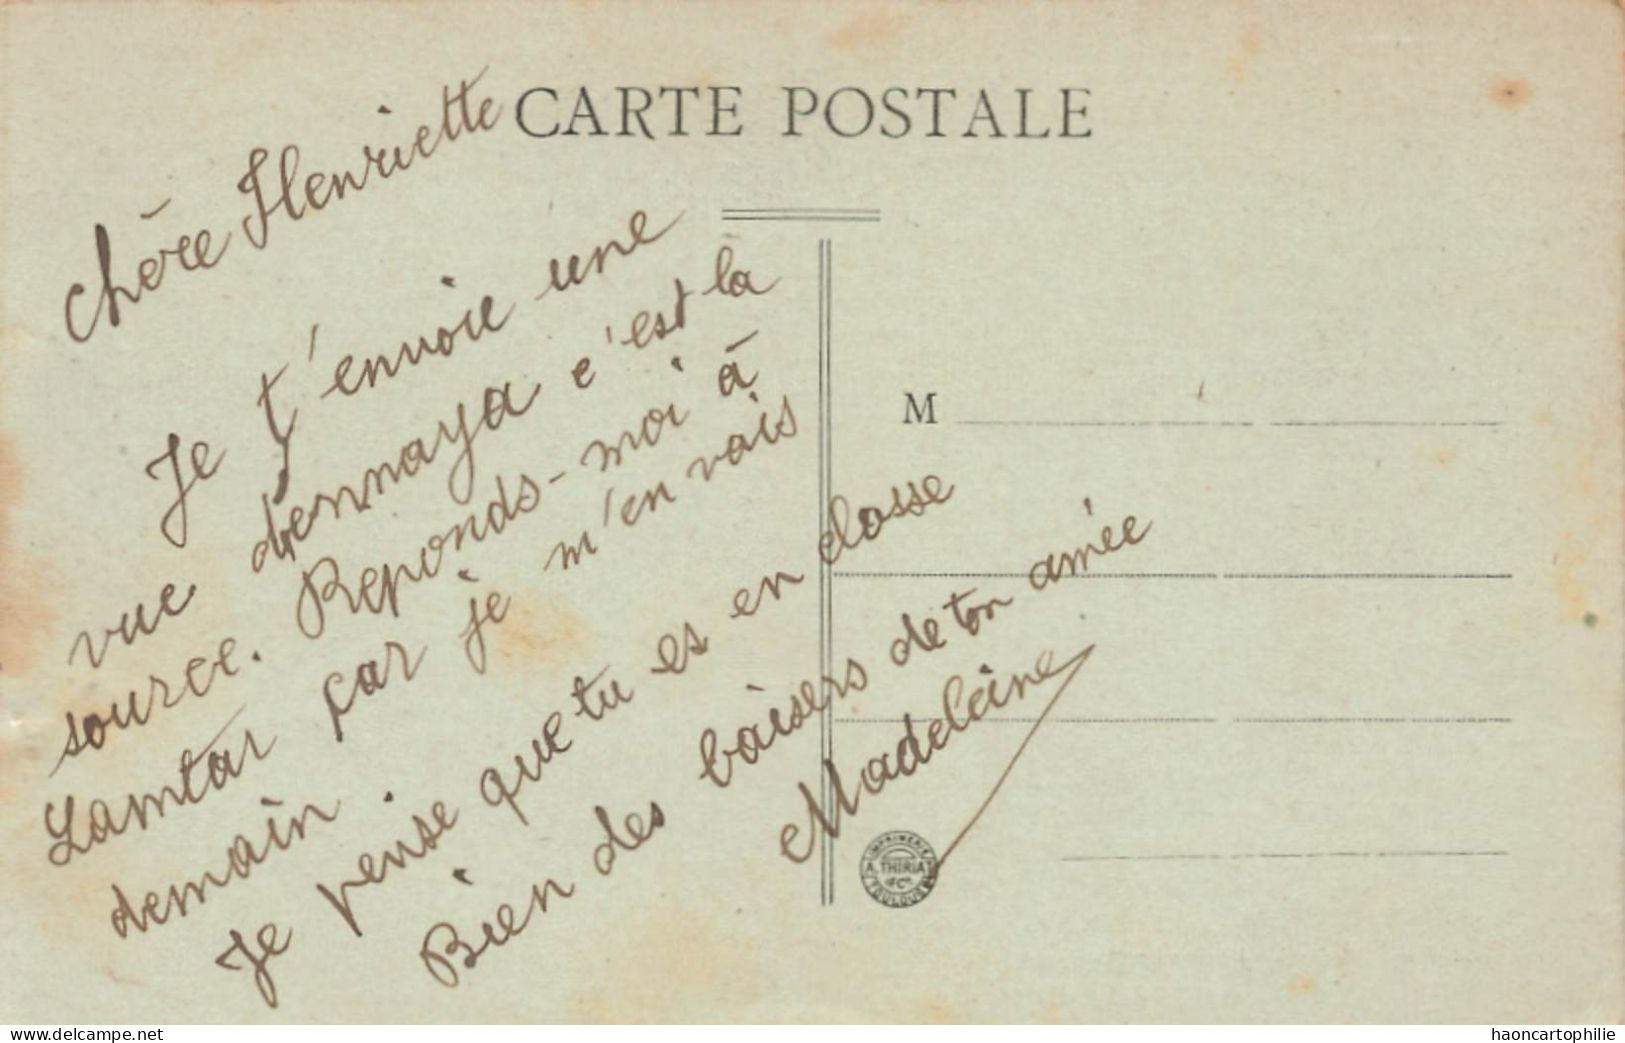 CARTE POSTALE
Chère Henriette
Je t'envoie une
vue d'ennaya c'est la
source. Reponds-moi à
Lamtar car je m'en vais
demain.
Je pense que tu es en classe
Bien des baisers de ton amée
Madeleine
M
IMPRIMERIE
A. THIRIAT
& Cie
TOULOUSE
www.delcampe.net
haoncartophilie